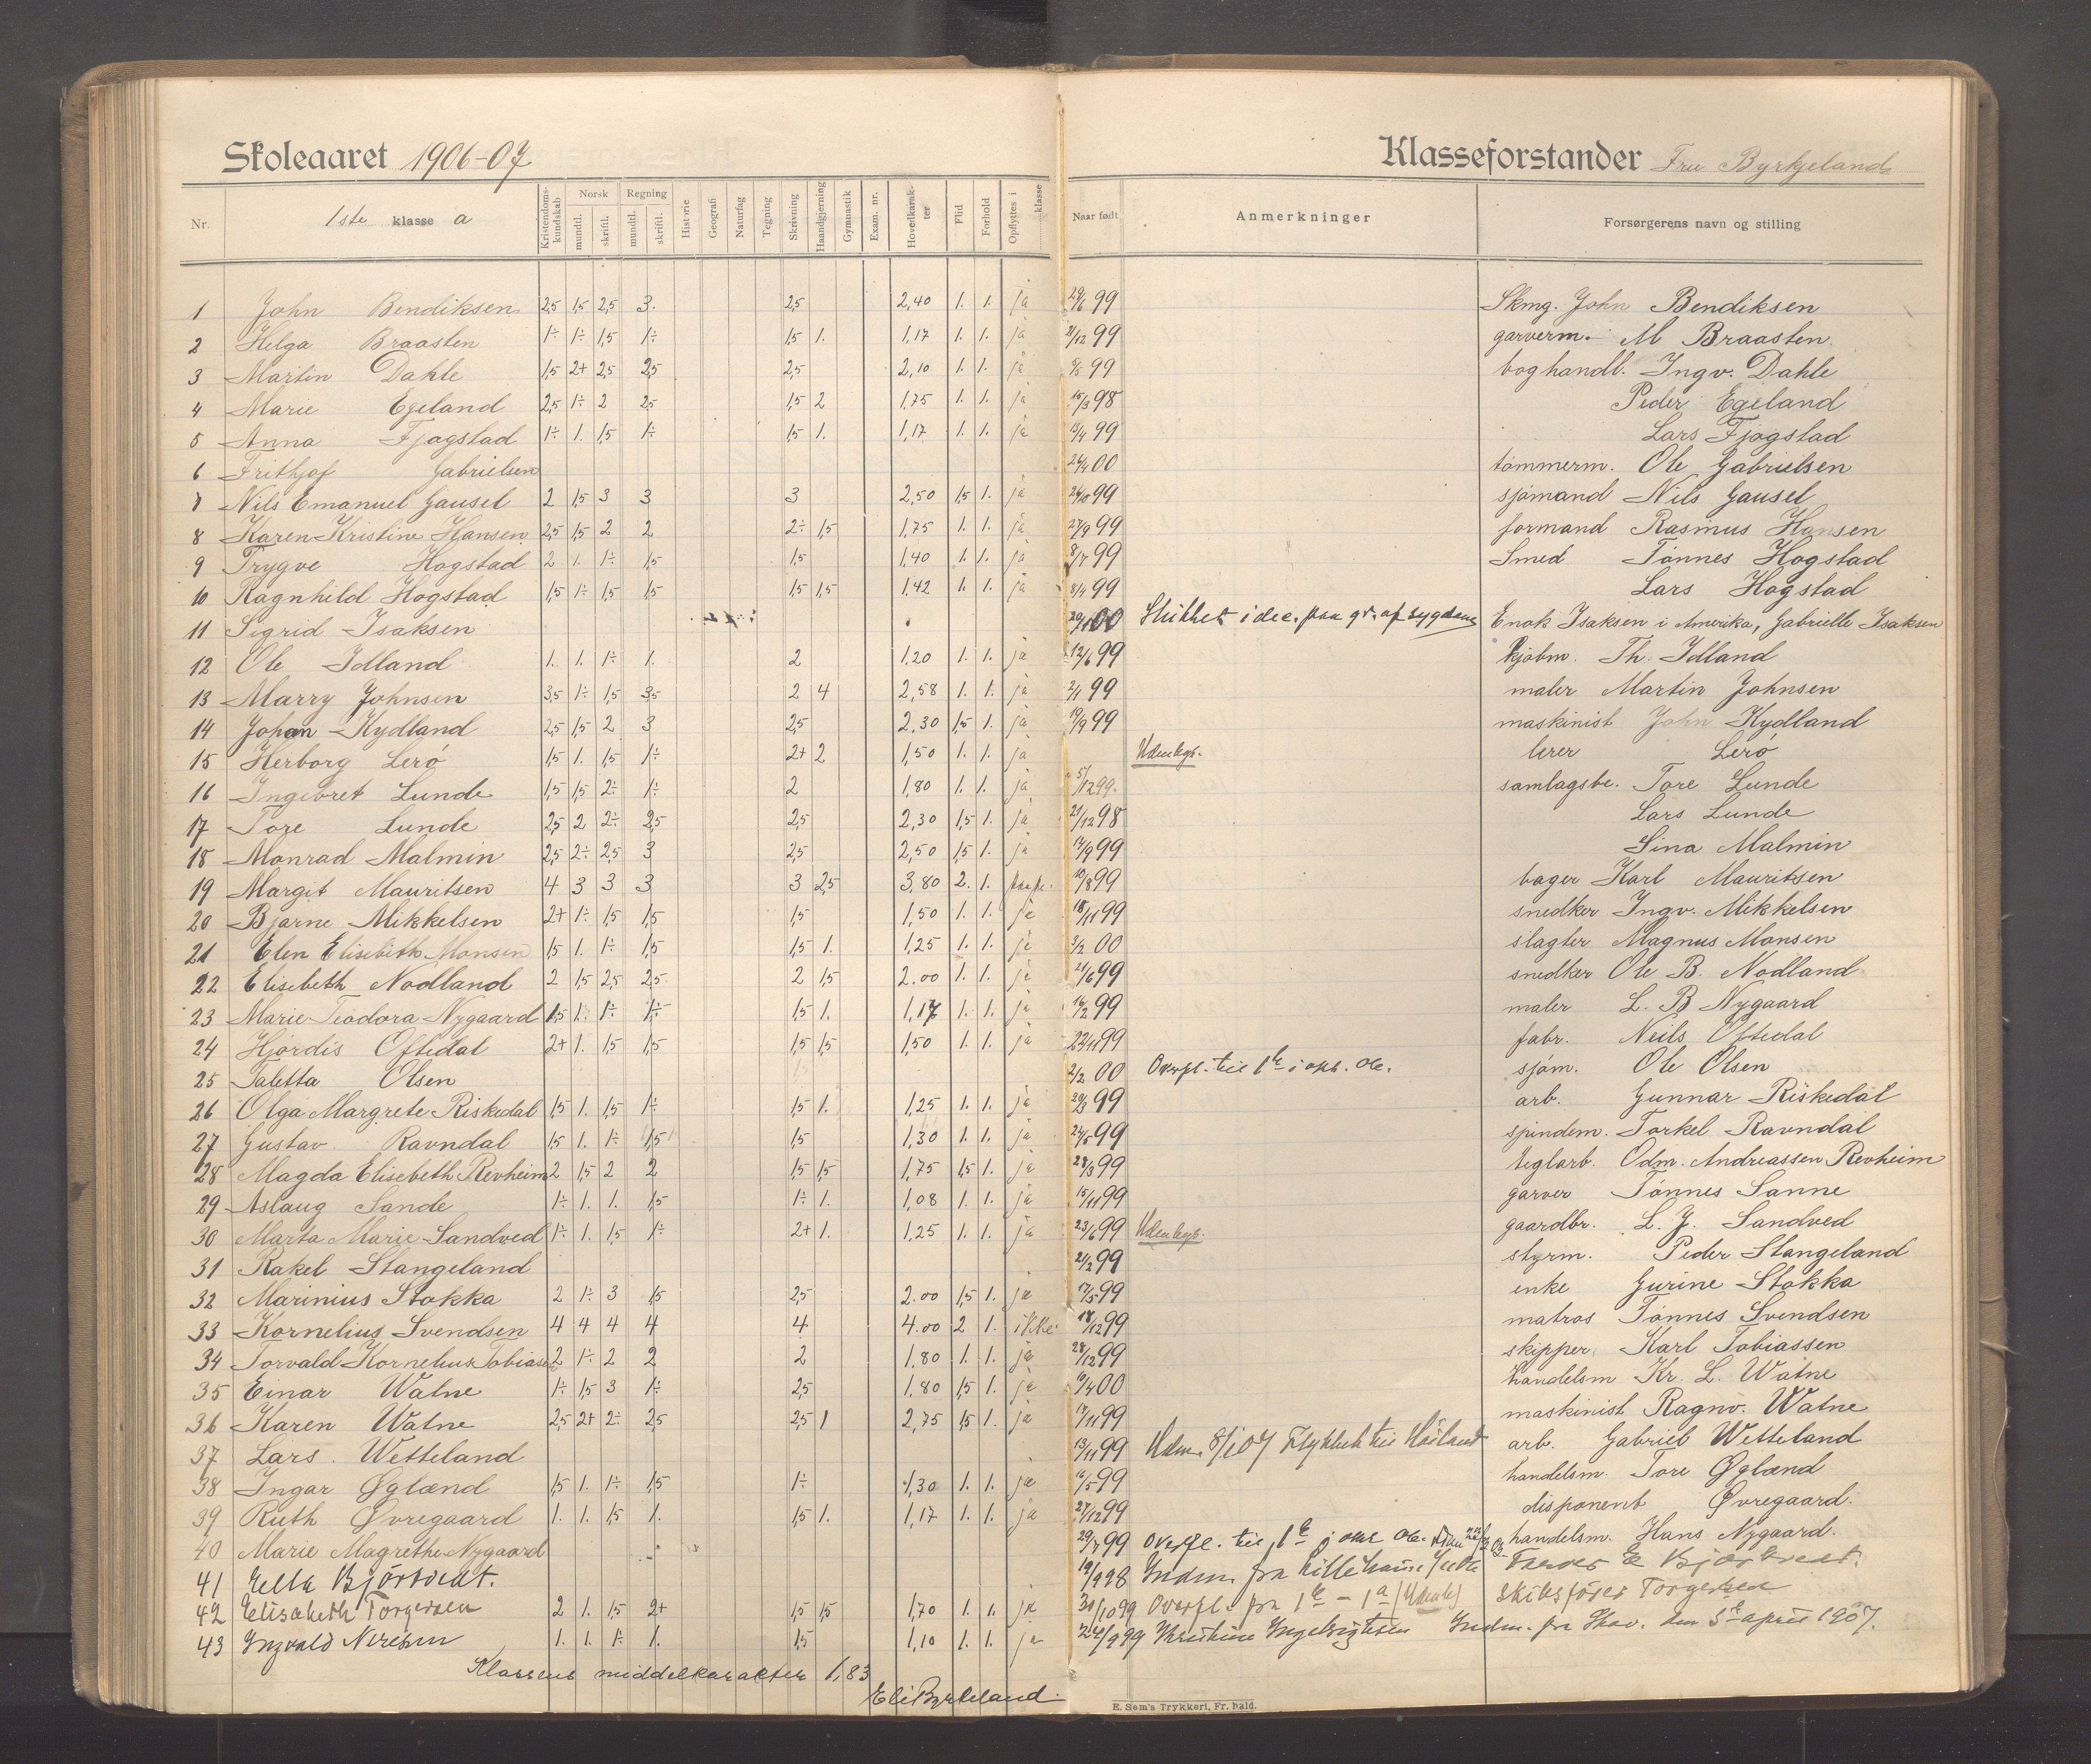 Skoleaaret 1906-07 Klasseforstander Fru Byrkjeland
Nr. 1ste klasse a Kristendoms-kundskab Norsk mundtl. skriftl. Regning mundtl. skriftl. Historie Geografi Naturfag Tegning Skrivning Haandgjerning Gymnastik Exam. nr. Hovedkarak-ter Flid Forhold Opflyttes i klasse Naar født Anmerkninger Forsørgerens navn og stilling
1 John Bendiksen 2,5 1,5 2,5 3. 2,5 2,40 1. 1. ja 29/6 99 Skmg. John Bendiksen
2 Helga Braasten 1÷ 1÷ 1,5 1÷ 1,5 1. 1,17 1. 1. ja 2/12 99 garverm. M Braasten
3 Martin Dahle 1,5 2+ 2,5 2,5 2,5 2,10 1. 1. ja 99 boghandl. Ingv. Dahle
4 Marie Egeland 2,5 1÷ 2 2,5 1,5 2 1,75 1. 1. ja 15/3 98 Peder Egeland
5 Anna Fjogstad 1÷ 1. 1,5 1÷ 1,5 1. 1,17 1. 1. ja 13/4 99 Lars Fjogstad
6 Frithjof Gabrielsen 24/4 00 tømmerm. Ole Gabrielsen
7 Nils Emanuel Gausel 2 1,5 3 3 3 2,50 1,5 1. ja 99 sjømand Nils Gausel
8 Karen Kristine Hansen 2,5 1,5 2 2 2÷ 1,5 1,75 1. 1. ja 27/9 99 formand Rasmus Hansen
9 Trygve Hogstad 2 1. 1÷ 1,5 1,5 1,40 1. 1. ja 8/7 99 Smed Tønnes Hogstad
10 Ragnhild Hogstad 1,5 1÷ 1,5 1,5 1,5 1,5 1,42 1. 1. ja 8/4 99 Lars Hogstad
11 Sigrid Isaksen 00 Sluttet i dec. paa gr. af sygdom Enok Isaksen i Amerika, Gabrielle Isaksen
12 Ole Idland 1. 1. 1÷ 1. 2 1,20 1. 1. ja 12/6 99 kjøbm. Th. Idland
13 Marry Johnsen 3,5 1÷ 1,5 3,5 2 4 2,58 1. 1. ja 2/1 99 maler Martin Johnsen
14 Johan Kydland 2,5 1,5 2 3 2,5 2.30 1,5 1. ja 19/9 99 maskinist John Kydland
15 Herborg Lerø 1,5 1. 1,5 1÷ 2+ 2 1,50 1. 1. ja Udenbys. lerer Lerø
16 Ingebret Lunde 1,5 1,5 2÷ 1÷ 2 1,80 1. 1. ja 5/12 99. samlagsbe. Tore Lunde
17 Tore Lunde 2,5 2 2÷ 2,5 2,5 2,30 1,5 1. ja 21/12 98 Lars Lunde
18 Monrad Malmin 2,5 2÷ 2,5 3 2,5 2,50 1,5 1. ja 17/9 99 Sina Malmin
19 Margit Mauritsen 4 3 3 3 3 2,5 3,80 2. 1. 10/8 99 bager Karl Mauritsen
20 Bjarne Mikkelsen 2+ 1÷ 1,5 1,5 1,5 1,50 1. 1. ja 18/11 99 snedker Ingv. Mikkelsen
21 Elen Elisebeth Monsen 1,5 1. 1÷ 1,5 1,5 1. 1,25 1. 1. ja 3/2 00 slagter Magnus Monsen
22 Elisebeth Nodland 2 1,5 2,5 2,5 2 1,5 2.00 1. 1. ja 21/6 99 snedker Ole B. Nodland
23 Marie Teodora Nygaard 1,5 1. 1÷ 1÷ 1,5 1. 1,17 1. 1. ja 16/2 99 maler L. B Nygaard
24 Hjørdis Oftedal 2+ 1. 1,5 1,5 1,5 1,5 1,50 1. 1. ja 22/11 99 fabr. Neils Oftedal
25 Taletta Olsen 2/2 00 Overfl. til 1te i okt. Ole Olsen sjøm.
26 Olga Margrete Riskedal 1,5 1. 1,5 1÷ 1,5 1. 1,25 1. 1. ja 99 arb. Gunnar Riskedal
27 Gustav Ravndal 1,5 1. 1÷ 1,5 1,5 1,30 1. 1. ja 99 spindem. Torkel Ravndal
28 Magda Elisebeth Revheim 2 1,5 2 2 1,5 1,5 1,75 1,5 1. ja 28/3 99 teglarb. Odm. Andreassen Revheim
29 Aslaug Sande 1÷ 1. 1. 1,5 1÷ 1. 1,08 1. 1. ja 15/11 99 garver Tønnes Sanne
30 Marta Marie Sandved 1÷ 1. 1,5 1÷ 2+ 1. 1,25 1. 1. ja 23/6 99 Udenbys. gaardbr. L. J. Sandved
31 Rakel Stangeland 21/2 99 styrm. Peder Stangeland
32 Marinius Stokka 2 1÷ 3 1,5 2,5 2.00 1,5 1. ja 17/5 99 enke Gurine Stokka
33 Kornelius Svendsen 4 4 4 4 4 4.00 2 1. ikke 18/12 99 matros Tønnes Svendsen
34 Torvald Kornelius Tobiasen 2 1÷ 2 2 2 1,80 1. 1. ja 28/12 99 skipper Karl Tobiassen
35 Einar Watne 1÷ 1,5 3 1÷ 2,5 1,80 1,5 1. ja 00 handelsm Kr. L. Watne
36 Karen Watne 2,5 2+ 2÷ 2,5 2,5 1 2,75 1,5 1. ja 17/11 99 maskinist Ragnv. Watne
37 Lars Wetteland 13/11 99 Udm. 8/1 07 Flyttet til Høiland arb. Gabriel Wetteland
38 Ingar Øglænd 1,5 1. 1÷ 1,5 1÷ 1,30 1. 1. ja 16/5 99 handelsm. Tore Øglænd
39 Ruth Øvregaard 1. 1. 1,5 1. 1,5 1. 1,17 1. 1. ja 27/12 99 disponent Øvregaard.
40 Marie Magrethe Nygaard 29/7 99 Overfl. til 1te handelsm. Hans Nygaard.
41 Ella Bjørtvedt. 19/9 98 Indm. fra Lillehammer
42 Elisabeth Torgersen 2 1. 1,5 2+ 1,5 1,5 1,70 1. 1. ja 31/10 99 Overfl. fra 1te - 1a skibsfører Torgersen
43 Ingvald 1. 1. 1÷ 1. 1,5 1,10 1. 1. ja 24/9 99 Indm. fra Skov. den 3te april 1907.
Klassens middelkarakter 1,83
Eli Byrkeland.
E. Sem's Trykkeri, Fr. hald.